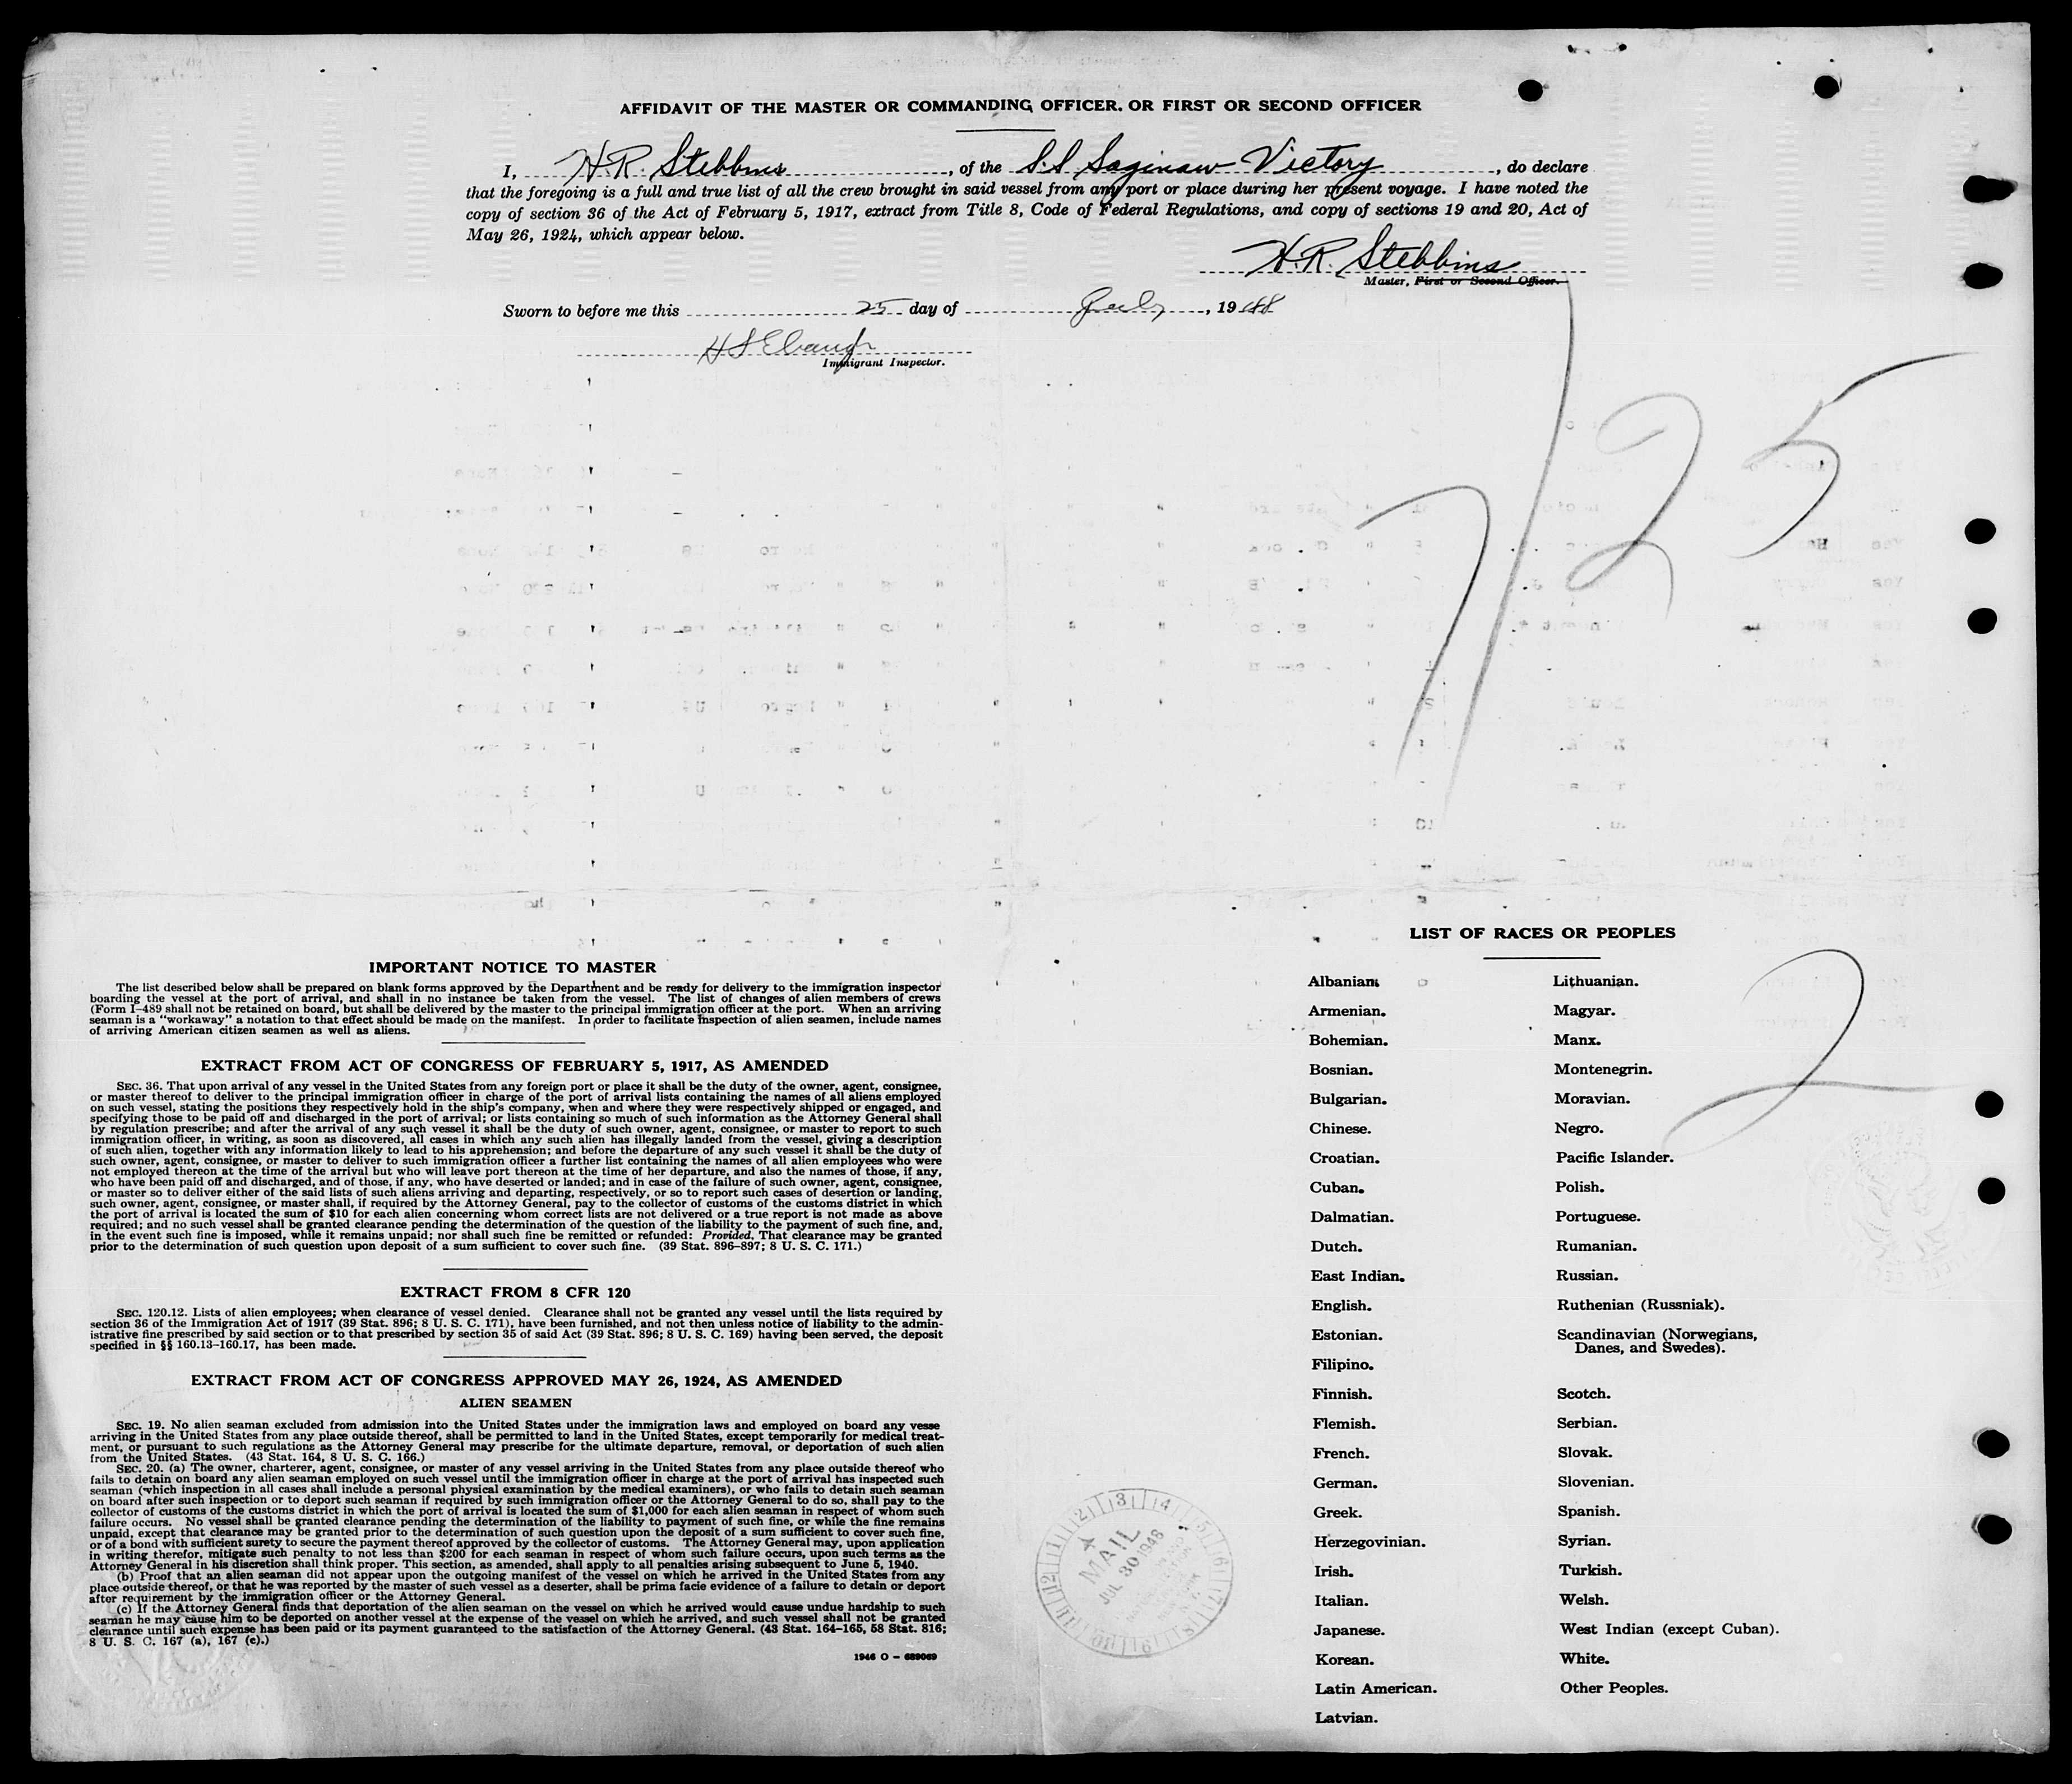 AFFIDAVIT OF THE MASTER OR COMMANDING OFFICER, OR FIRST OR SECOND OFFICER
I, H.R. Stebbins, of the S.S Saginaw Victory, do declare
that the foregoing is a full and true list of all the crew brought in said vessel from any port or place during her present voyage. I have noted the
copy of section 36 of the Act of February 5, 1917, extract from Title 8, Code of Federal Regulations, and copy of sections 19 and 20, Act of
May 26, 1924, which appear below.
H.R. Stebbins
Master, First or Second Officer.
Sworn to before me this 25 day of July, 1948
Immigrant Inspector.
7/25
IMPORTANT NOTICE TO MASTER
The list described below shall be prepared on blank forms approved by the Department and be ready for delivery to the immigration inspector
boarding the vessel at the port of arrival, and shall in no instance be taken from the vessel. The list of changes of alien members of crews
(Form I-489 shall not be retained on board, but shall be delivered by the master to the principal immigration officer at the port. When an arriving
seaman is a "workaway" a notation to that effect should be made on the manifest. In order to facilitate inspection of alien seamen, include names
of arriving American citizen seamen as well as aliens.
EXTRACT FROM ACT OF CONGRESS OF FEBRUARY 5, 1917, AS AMENDED
SEC. 36. That upon arrival of any vessel in the United States from any foreign port or place it shall be the duty of the owner, agent, consignee,
or master thereof to deliver to the principal immigration officer in charge of the port of arrival lists containing the names of all aliens employed
on such vessel, stating the positions they respectively hold in the ship's company, when and where they were respectively shipped or engaged, and
specifying those to be paid off and discharged in the port of arrival; or lists containing so much of such information as the Attorney General shall
by regulation prescribe; and after the arrival of any such vessel it shall be the duty of such owner, agent, consignee, or master to report to such
immigration officer, in writing, as soon as discovered, all cases in which any such alien has illegally landed from the vessel, giving a description
of such alien, together with any information likely to lead to his apprehension; and before the departure of any such vessel it shall be the duty of
such owner, agent, consignee, or master to deliver to such immigration officer a further list containing the names of all alien employees who were
not employed thereon at the time of the arrival but who will leave port thereon at the time of her departure, and also the names of those, if any,
who have been paid off and discharged, and of those, if any, who have deserted or landed; and in case of the failure of such owner, agent, consignee,
or master so to deliver either of the said lists of such aliens arriving and departing, respectively, or so to report such cases of desertion or landing,
such owner, agent, consignee, or master shall, if required by the Attorney General, pay to the collector of customs of the customs district in which
the port of arrival is located the sum of $10 for each alien concerning whom correct lists are not delivered or a true report is not made as above
required; and no such vessel shall be granted clearance pending the determination of the question of the liability to the payment of such fine, and,
in the event such fine is imposed, while it remains unpaid; nor shall such fine be remitted or refunded: Provided, That clearance may be granted
prior to the determination of such question upon deposit of a sum sufficient to cover such fine. (39 Stat. 896-897; 8 U. S. C. 171.)
EXTRACT FROM 8 CFR 120
SEC. 120.12. Lists of alien employees; when clearance of vessel denied. Clearance shall not be granted any vessel until the lists required by
section 36 of the Immigration Act of 1917 (39 Stat. 896; 8 U. S. C. 171), have been furnished, and not then unless notice of liability to the admin-
istrative fine prescribed by said section or to that prescribed by section 35 of said Act (39 Stat. 896; 8 U. S. C. 169) having been served, the deposit
specified in §§ 160.13-160.17, has been made.
EXTRACT FROM ACT OF CONGRESS APPROVED MAY 26, 1924, AS AMENDED
ALIEN SEAMEN
SEC. 19. No alien seaman excluded from admission into the United States under the immigration laws and employed on board any vesse
arriving in the United States from any place outside thereof, shall be permitted to land in the United States, except temporarily for medical treat-
ment, or pursuant to such regulations as the Attorney General may prescribe for the ultimate departure, removal, or deportation of such alien
from the United States. (43 Stat. 164, 8 U. S. C. 166.)
SEC. 20. (a) The owner, charterer, agent, consignee, or master of any vessel arriving in the United States from any place outside thereof who
fails to detain on board any alien seaman employed on such vessel until the immigration officer in charge at the port of arrival has inspected such
seaman (which inspection in all cases shall include a personal physical examination by the medical examiners), or who fails to detain such seaman
on board after such inspection or to deport such seaman if required by such immigration officer or the Attorney General to do so, shall pay to the
collector of customs of the customs district in which the port of arrival is located the sum of $1,000 for each alien seaman in respect of whom such
failure occurs. No vessel shall be granted clearance pending the determination of the liability to payment of such fine, or while the fine remains
unpaid, except that clearance may be granted prior to the determination of such question upon the deposit of a sum sufficient to cover such fine,
or of a bond with sufficient surety to secure the payment thereof approved by the collector of customs. The Attorney General may, upon application
in writing therefor, mitigate such penalty to not less than $200 for each seaman in respect of whom such failure occurs, upon such terms as the
Attorney General in his discretion shall think proper. This section, as amended, shall apply to all penalties arising subsequent to June 5, 1940.
(b) Proof that an alien seaman did not appear upon the outgoing manifest of the vessel on which he arrived in the United States from any
place outside thereof, or that he was reported by the master of such vessel as a deserter, shall be prima facie evidence of a failure to detain or deport
after requirement by the immigration officer or the Attorney General.
(c) If the Attorney General finds that deportation of the alien seaman on the vessel on which he arrived would cause undue hardship to such
seaman he may cause him to be deported on another vessel at the expense of the vessel on which he arrived, and such vessel shall not be granted
clearance until such expense has been paid or its payment guaranteed to the satisfaction of the Attorney General. (43 Stat. 164-165, 58 Stat. 816;
8 U. S. C. 167 (a), 167 (c).)
1946 O - 689069
MAIL
JUL 30 1948
LIST OF RACES OR PEOPLES
Albanian. Lithuanian.
Armenian. Magyar.
Bohemian. Manx.
Bosnian. Montenegrin.
Bulgarian. Moravian.
Chinese. Negro.
Croatian. Pacific Islander.
Cuban. Polish.
Dalmatian. Portuguese.
Dutch. Rumanian.
East Indian. Russian.
English. Ruthenian (Russniak).
Estonian. Scandinavian (Norwegians,
Danes, and Swedes).
Filipino.
Finnish. Scotch.
Flemish. Serbian.
French. Slovak.
German. Slovenian.
Greek. Spanish.
Herzegovinian. Syrian.
Irish. Turkish.
Italian. Welsh.
Japanese. West Indian (except Cuban).
Korean. White.
Latin American. Other Peoples.
Latvian.
2